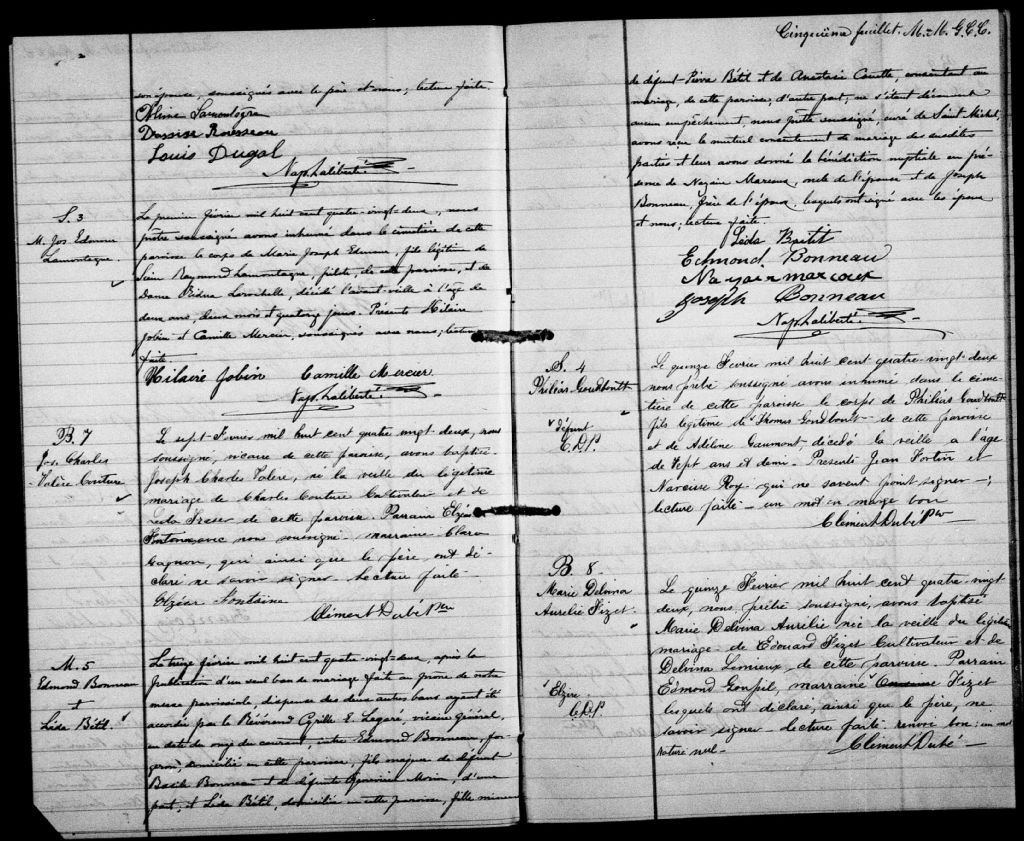 son épouse, soussignés avec le père et nous; lecture faite.
Alima Lamontagne
Dassise Rousseau
Louis Dugal
Nap. Laliberté
S. 3
M. Jos. Edmour
Lamontagne.
Le premier février mil huit cent quatre-vingt-deux, nous
prêtre soussigné avons inhumé dans le cimetière de cette
paroisse le corps de Marie Joseph Edmour, fils légitime de
Sieur Raymond Lamontagne, pilote, de cette paroisse, et de
Dame Larochelle, décédé l'avant-veille à l'âge de
deux ans, deux mois et quatorze jours. Présents Hilaire
Jobin et Camille Mercier, soussignés avec nous; lecture
faite.
Hilaire Jobin Camille Mercier
Nap. Laliberté
B. 7
Jos. Charles
Valère Couture
Le sept Fevrier mil huit cent quatre vingt deux, nous
soussigné, vicaire de cette paroisse, avons baptisé
Joseph Charles Valère, né la veille du légitime
mariage de Charles Couture Cultivateur et de
Leda Fraser de cette paroisse. Parrain Elzéar
Fontaine avec nous soussigné marraine Clara
Gagnon, qui ainsi que le père, ont dé-
claré ne savoir signer. Lecture faite
Elzéar Fontaine
Clément Dubé Ptre
M. 5
Edmond Bonneau
+
Léda Bétil
Le treize février mil huit cent quatre-vingt-deux, après la
publication d'un seul ban de mariage faite au prône de notre
messe paroissiale, dispense des deux autres bans ayant été
accordée par le Révérend Cyrille E. Legaré, vicaire général,
en date du onze du courant, entre Edmond Bonneau, for-
geron, domicilié en cette paroisse, fils majeur de défunt
Basile Bonneau et de défunte Geneviève Morin, d'une
part; et Léda Bétil, domiciliée en cette paroisse, fille mineure
Cinquième feuillet. M.-M. G.C.C.
de défunt Pierre Bétil et de Anastasie Couette, consentant au
mariage, de cette paroisse, d'autre part; ne s'étant découvert
aucun empêchement, nous prêtre soussigné, curé de Saint Michel,
avons reçu le mutuel consentement de mariage des susdites
parties et leur avons donné la bénédiction nuptiale en pré-
sence de Nazaire Marcoux, oncle de l'épouse et de Joseph
Bonneau, frère de l'époux, lesquels ont signé avec les époux
et nous; lecture faite.
Léda Bétit
Edmond Bonneau
Nazair marcoux
Joseph Bonneau
Nap. Laliberté
S. 4
Philéas Goudboutt
défunt
C.D.P.
Le quinze Fevrier mil huit cent quatre-vingt-deux
nous prêtre soussigné avons inhumé dans le cime-
tière de cette paroisse le corps de Philéas Goudboutt
fils légitime de Thomas Goudboutt de cette paroisse
et de Adeline Gaumont, décédé la veille a l'âge
de sept ans et demi. Presents Jean Fortin et
Narcisse Roy qui ne savent point signer;
lecture faite – un mot en marge bon
Clément Dubé Ptre
B. 8.
Marie Delvina
Aurelie Fizet
Elzire
C.D.P.
Le quinze Fevrier mil huit cent quatre-vingt
deux, nous prêtre soussigné, avons baptisé
Marie Delvina Aurélie née la veille du légitime
mariage de Edouard Fizet Cultivateur et de
Delvina Lemieux de cette paroisse. Parrain
Edmond Goupil, marraine Fizet
lesquels ont déclaré, ainsi que le père, ne
savoir signer – lecture faite renvoi bon; un mot
rature nul –
Clément Dubé –